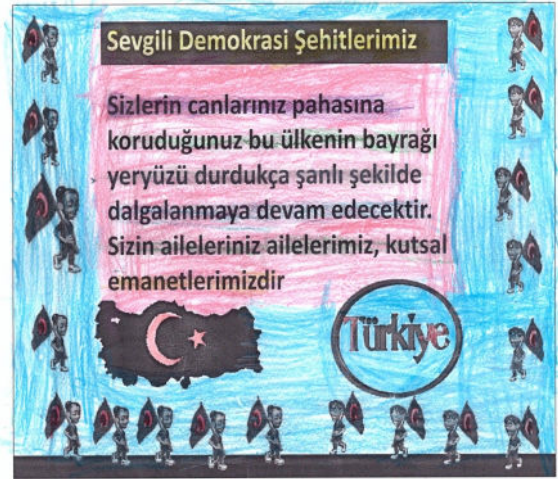 Sevgili Demokrasi Şehitlerimiz
Sizlerin canlarınız pahasına
koruduğunuz bu ülkenin bayrağı
yeryüzü durdukça şanlı şekilde
dalgalanmaya devam edecektir.
Sizin aileleriniz ailelerimiz, kutsal
emanetlerimizdir
Türkiye